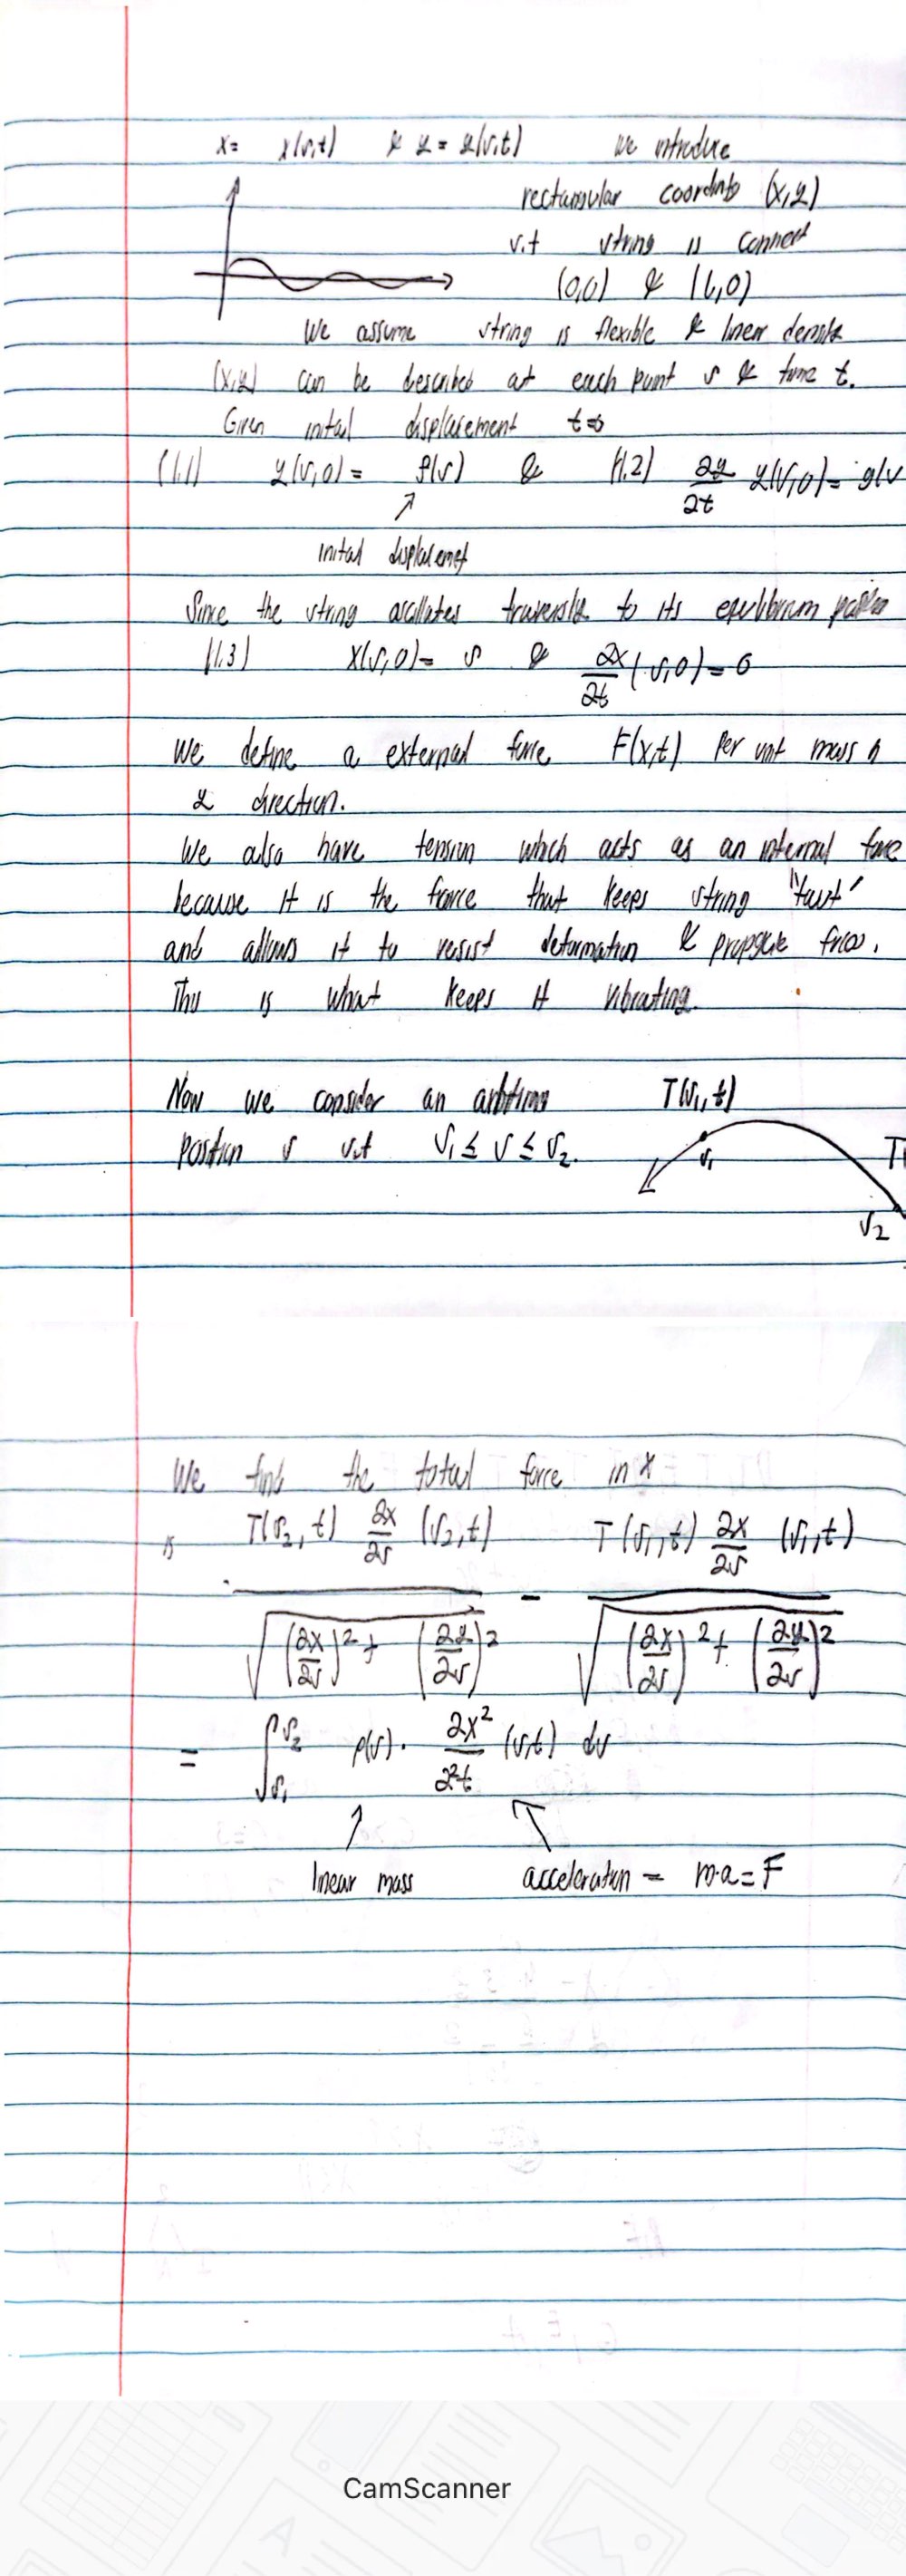 x = x(s,t) & y = y(s,t) We introduce
rectangular coordinate (x,y)
s.t string is connect
(0,0) & (l,0)
We assume string is flexible & linear density
(x,y) can be described at each point s & time t.
Given inital displacement t=0
(1.1) y(s,0) = f(s) & (1.2) ∂y/∂t y(s,0) = g(s
↗
inital displacemet
Since the string oscillates traversly to its equilibrium
(1.3) x(s,0) = s & ∂x/∂t (s,0) = 0
We define a external force F(x,t) per unit mass n
y direction.
We also have tension which acts as an internal force
because it is the force that keeps string "taut"
and allows it to resist deformation & propgate
This is what keeps it vibrating.
Now we consider an T(s₁,t)
position s s.t s₁ ≤ s ≤ s₂. s₁ T
s₂
We find the total force in x
is T(s₂,t) ∂x/∂s (s₂,t) / √((∂x/∂s)² + (∂y/∂s)²) - T(s₁,t) ∂x/∂s (s₁,t) / √((∂x/∂s)² + (∂y/∂s)²)
= ∫_{s₁}^{s₂} ρ(s) · ∂x²/∂²t (s,t) ds
linear mass acceleration = m·a = F
CamScanner